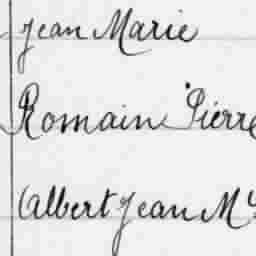 Jean Marie
Romain Pierre
Albert Jean M